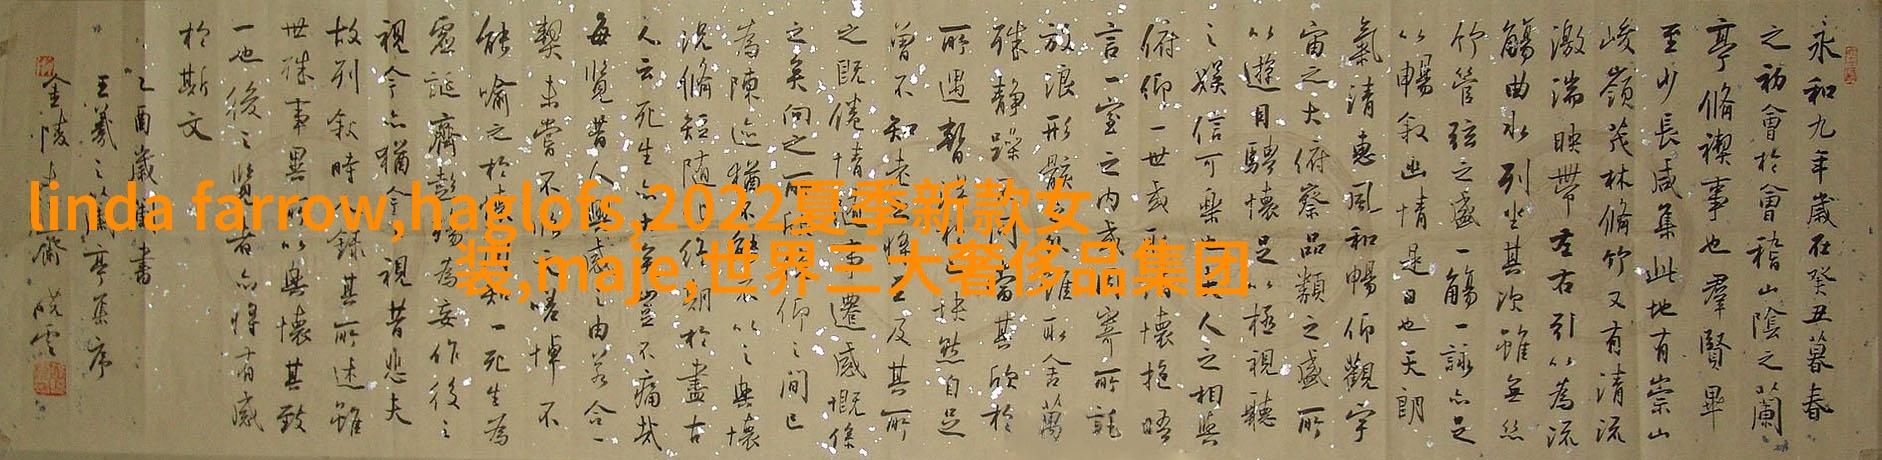 永和九年歲在癸丑暮春
之初會於會稽山陰之蘭
亭脩禊事也羣賢畢
至少長咸集此地有崇山
峻嶺茂林脩竹又有清流
激湍映帶左右引以為流
觴曲水列坐其次雖無絲
竹管弦之盛一觴一詠亦足
以暢敘幽情是日也天朗
氣清惠風和暢仰觀宇
宙之大俯察品類之盛所
以遊目騁懷足以極視聽
之娛信可樂也夫人之相與
俯仰一世或取諸懷抱晤
言一室之內或因寄所託
放浪形骸之外雖取舍萬
殊靜躁不同當其欣於
所遇暫得於己怏然自足
曾不知老之將至及其所
之既倦情隨事遷感慨係
之矣向之所欣俯仰之間已
為陳迹猶不能不以之興懷
況脩短随化終期於盡古
人云死生亦大矣豈不痛哉
每覽昔人興感之由若合一
契未嘗不臨文嗟悼不
能喻之於懷固知一死生為
虛誕齊彭殤為妄作後之
視今亦猶今之視昔悲夫
故列敘時人錄其所述雖
世殊事異所以興懷其致
一也後之覽者亦將有感
於斯文
乙酉歲書
王羲之蘭亭集序
金陵齋雲
linda farrow,haglofs,2022夏季新款女
装,maje,世界三大奢侈品集团